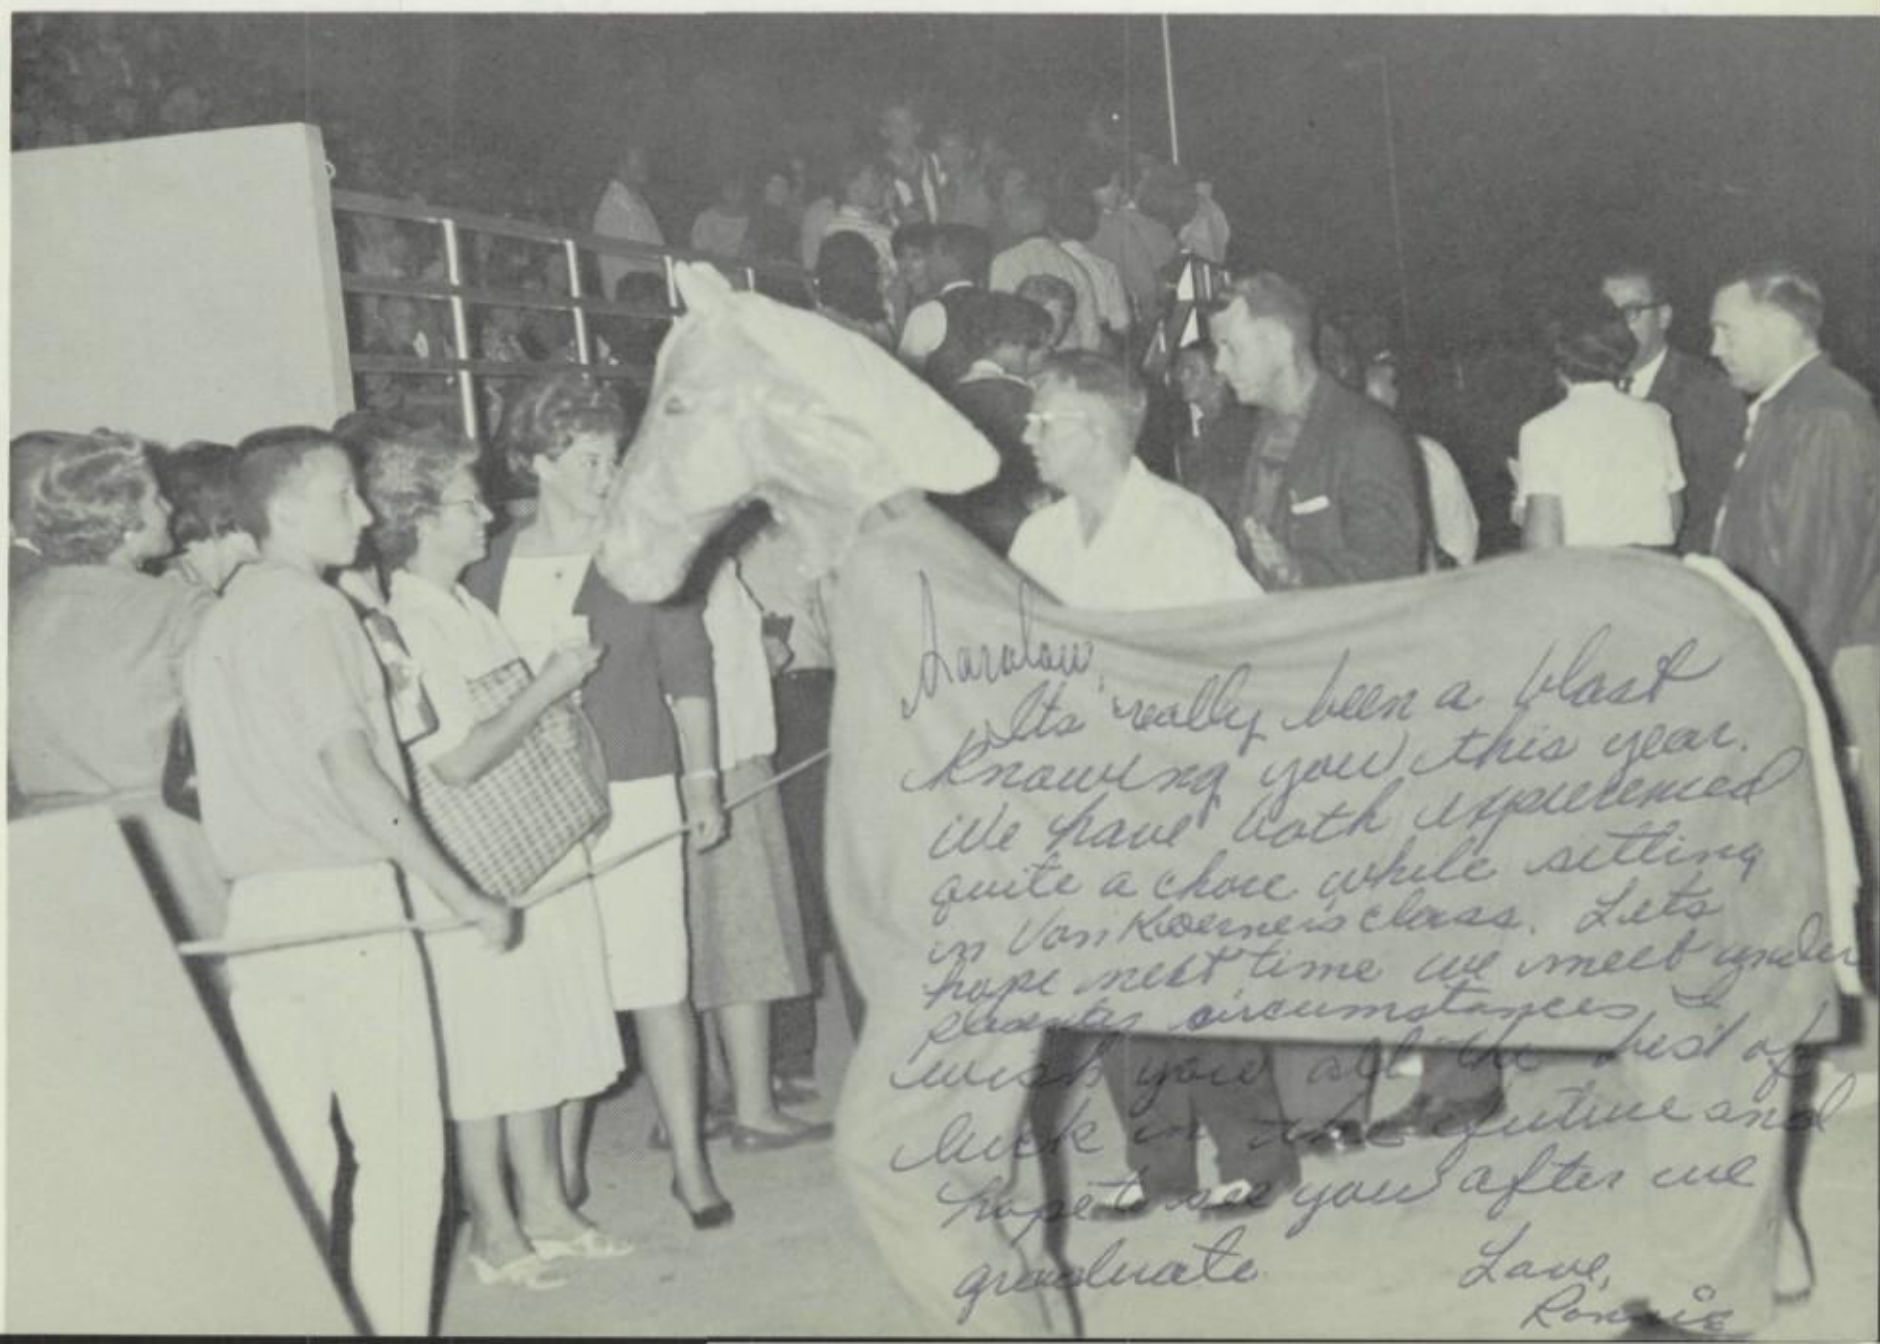 Saralou,
Its really been a blast
knowing you this year.
We have both experienced
quite a chore while setting
in Von Koerner's class. Lets
hope next time we meet under
circumstances I
wish you all the best of
luck in the future and
hope to see you after we
graduate
Love,
Ronnie